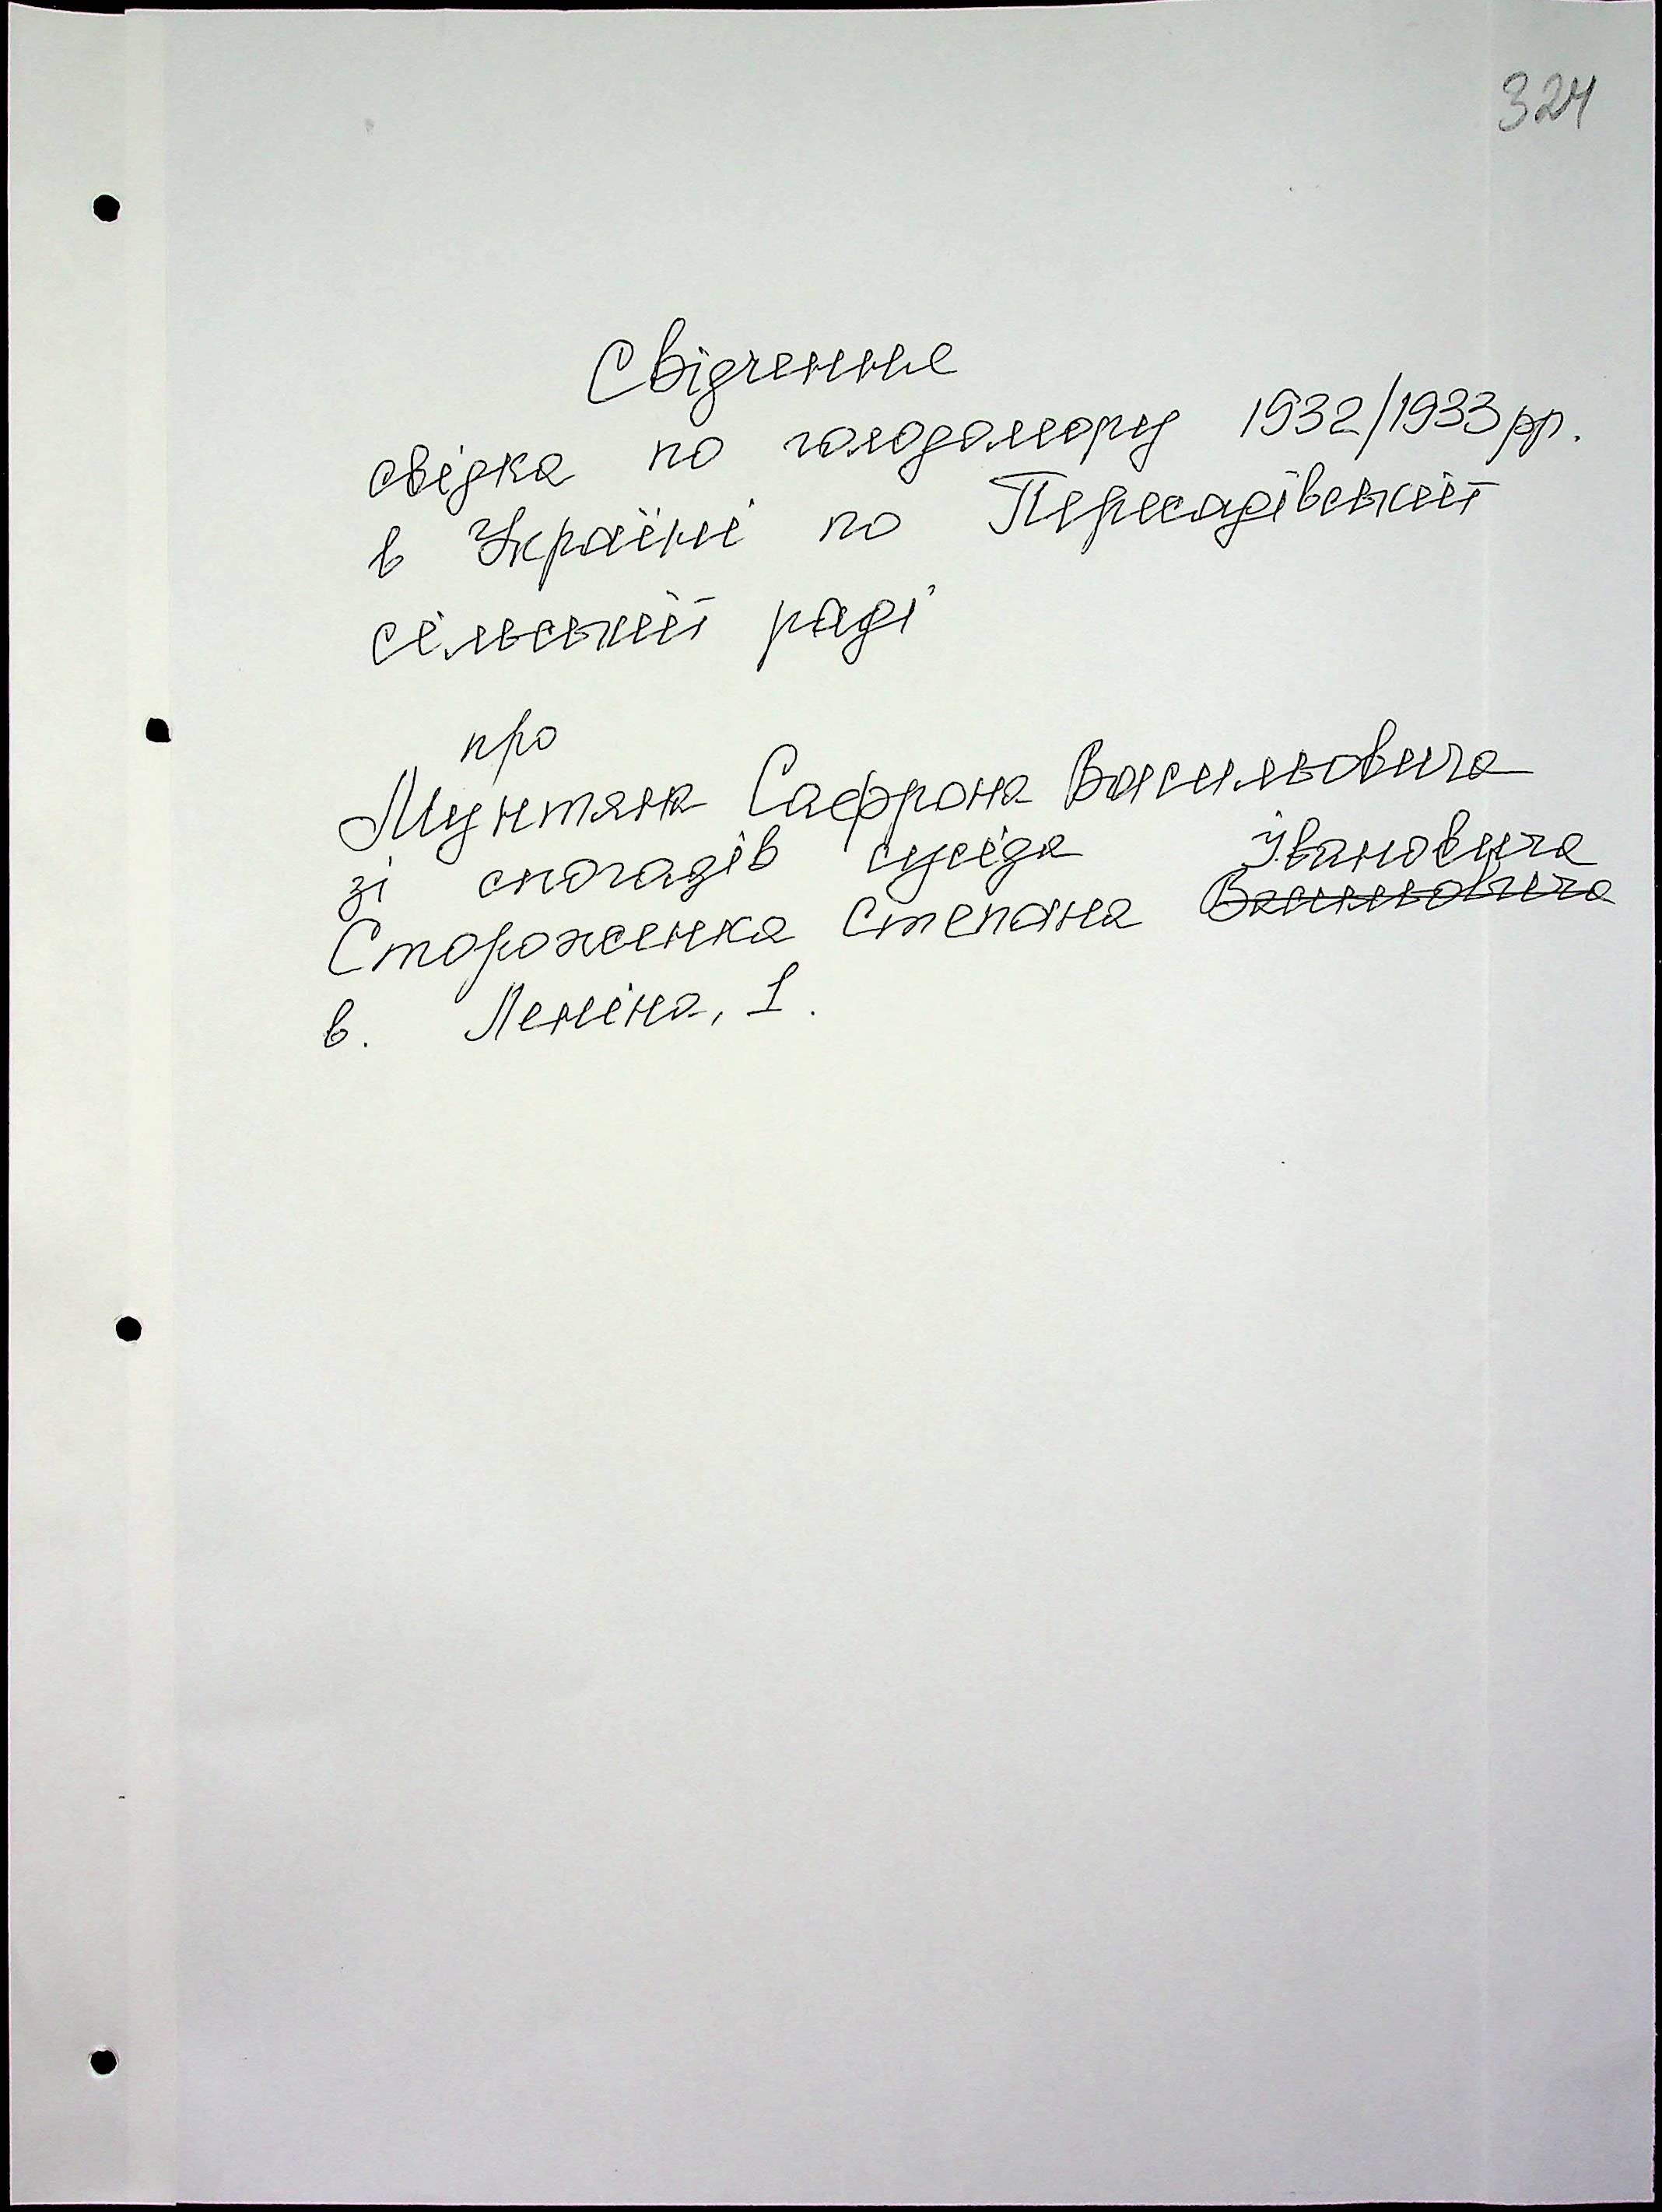 324
Свідчення
свідка по голодомору 1932/1933 рр.
в Україні по Пересадівській
сільській раді
про
Мунтяна Сафрона Васильовича
зі спогадів сусіда Івановича
Стороженка Степана Васильовича
в. Леніна, 1.